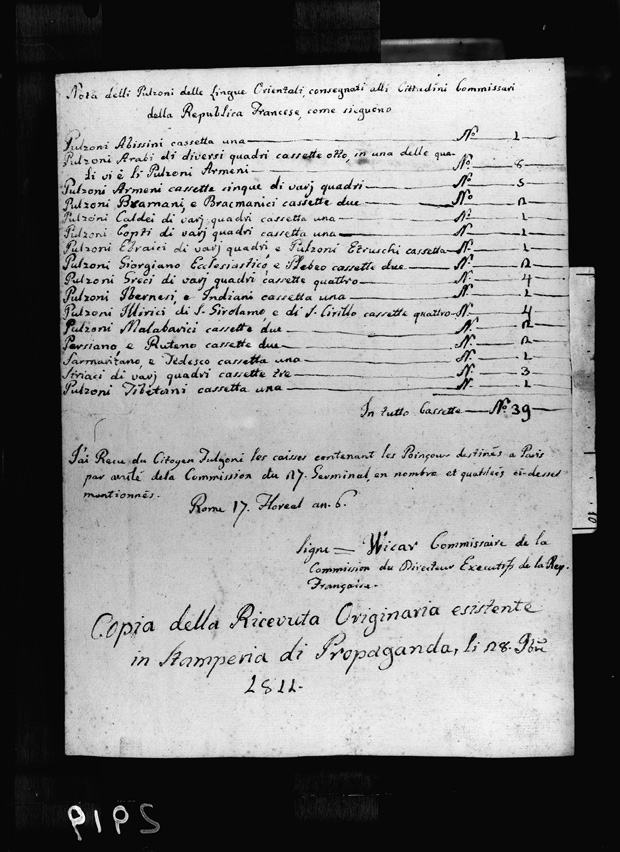 Nota delli Pulzoni delle Lingue Orientali, consegnati alli Cittadini Commissari
della Republica Francese, come sieguono
Pulzoni Abissini cassetta una — No. 1
Pulzoni Arabi di diversi quadri cassette otto, in una delle qua-
li vi è li Pulzoni Armeni — No. 8
Pulzoni Armeni cassette cinque di varj quadri — No. 5
Pulzoni Bramani, e Bracmanici cassette due — No. 2
Pulzoni Caldei di varj quadri cassetta una — No. 1
Pulzoni Copti di varj quadri cassetta una — No. 1
Pulzoni Ebraici di varj quadri e Pulzoni Etruschi cassetta — No. 1
Pulzoni Giorgiano Ecclesiastico, e Plebeo cassette due — No. 2
Pulzoni Greci di varj quadri cassette quattro — No. 4
Pulzoni Ibernesi, e Indiani cassetta una — No. 1
Pulzoni Illirici di S. Girolamo, e di S. Cirillo cassette quattro — No. 4
Pulzoni Malabarici cassette due — No. 2
Persiano, e Ruteno cassette due — No. 2
Sarmaritano, e Tedesco cassetta una — No. 1
Siriaci di varj quadri cassette tre — No. 3
Pulzoni Tibetani cassetta una — No. 1
In tutto Cassette — No. 39
J'ai Recu du Citoyen Fulgoni les caisses contenant les Poinçons destinés a Paris
par arrité de la Commission du 27. Germinal, en nombre et qualités ci-desses
mentionnés.
Rome 17. Floreal an. 6.
Signe — Wicar Commissaire de la
Commission du Directeur Executifs de la Rep.
Française.
Copia della Ricevuta Originaria esistente
in Stamperia di Propaganda, li 28. 9bre
1811.
10
2919